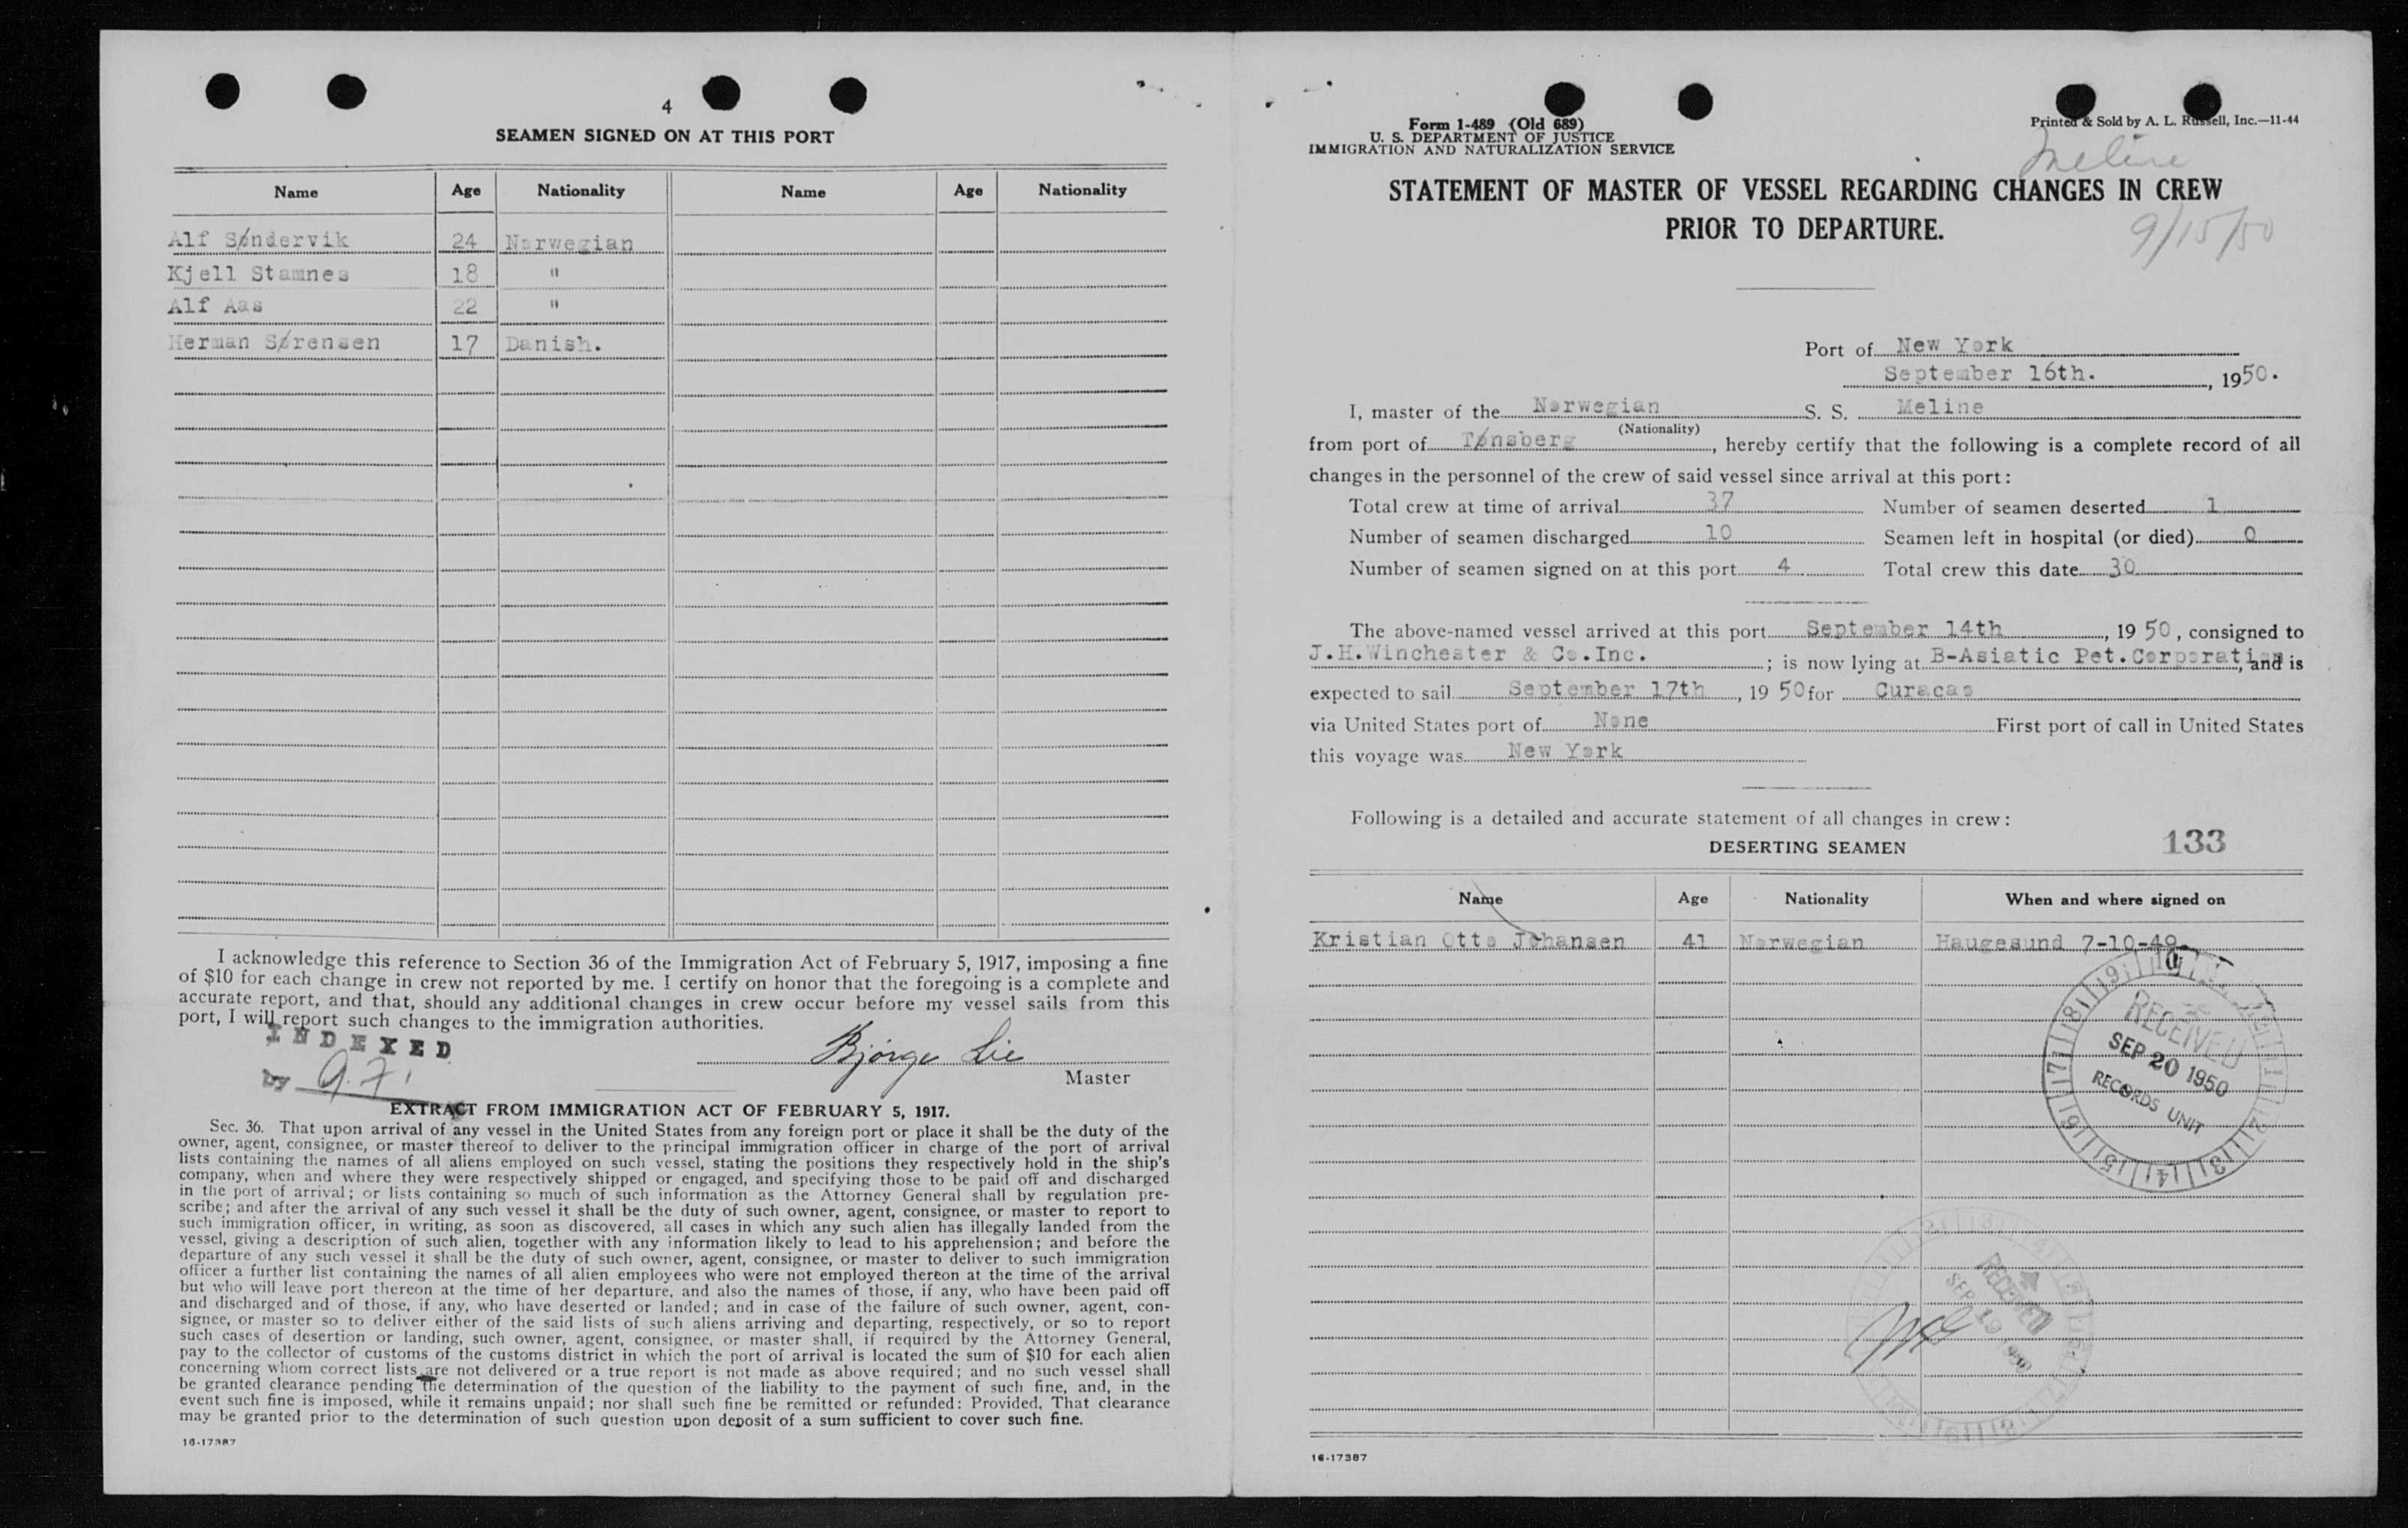 4
SEAMEN SIGNED ON AT THIS PORT
Name Age Nationality Name Age Nationality
Alf Søndervik 24 Norwegian
Kjell Stamnes 18 "
Alf Aas 22 "
Herman Sørensen 17 Danish.
I acknowledge this reference to Section 36 of the Immigration Act of February 5, 1917, imposing a fine
of $10 for each change in crew not reported by me. I certify on honor that the foregoing is a complete and
accurate report, and that, should any additional changes in crew occur before my vessel sails from this
port, I will report such changes to the immigration authorities.
INDEXED
by
Bjørge Lie
Master
EXTRACT FROM IMMIGRATION ACT OF FEBRUARY 5, 1917.
Sec. 36. That upon arrival of any vessel in the United States from any foreign port or place it shall be the duty of the
owner, agent, consignee, or master thereof to deliver to the principal immigration officer in charge of the port of arrival
lists containing the names of all aliens employed on such vessel, stating the positions they respectively hold in the ship's
company, when and where they were respectively shipped or engaged, and specifying those to be paid off and discharged
in the port of arrival; or lists containing so much of such information as the Attorney General shall by regulation pre-
scribe; and after the arrival of any such vessel it shall be the duty of such owner, agent, consignee, or master to report to
such immigration officer, in writing, as soon as discovered, all cases in which any such alien has illegally landed from the
vessel, giving a description of such alien, together with any information likely to lead to his apprehension; and before the
departure of any such vessel it shall be the duty of such owner, agent, consignee, or master to deliver to such immigration
officer a further list containing the names of all alien employees who were not employed thereon at the time of the arrival
but who will leave port thereon at the time of her departure, and also the names of those, if any, who have been paid off
and discharged and of those, if any, who have deserted or landed; and in case of the failure of such owner, agent, con-
signee, or master so to deliver either of the said lists of such aliens arriving and departing, respectively, or so to report
such cases of desertion or landing, such owner, agent, consignee, or master shall, if required by the Attorney General,
pay to the collector of customs of the customs district in which the port of arrival is located the sum of $10 for each alien
concerning whom correct lists are not delivered or a true report is not made as above required; and no such vessel shall
be granted clearance pending the determination of the question of the liability to the payment of such fine, and, in the
event such fine is imposed, while it remains unpaid; nor shall such fine be remitted or refunded: Provided, That clearance
may be granted prior to the determination of such question upon deposit of a sum sufficient to cover such fine.
16-17387
Form 1-489 (Old 689)
U. S. DEPARTMENT OF JUSTICE
IMMIGRATION AND NATURALIZATION SERVICE
Printed & Sold by A. L. Russell, Inc.—11-44
Meline
STATEMENT OF MASTER OF VESSEL REGARDING CHANGES IN CREW
PRIOR TO DEPARTURE.
9/15/50
Port of New York
September 16th. , 1950.
I, master of the Norwegian S. S. Meline
(Nationality)
from port of Tønsberg , hereby certify that the following is a complete record of all
changes in the personnel of the crew of said vessel since arrival at this port:
Total crew at time of arrival 37 Number of seamen deserted 1
Number of seamen discharged 10 Seamen left in hospital (or died) 0
Number of seamen signed on at this port 4 Total crew this date 30
The above-named vessel arrived at this port September 14th , 19 50 , consigned to
J.H.Winchester & Co.Inc. ; is now lying at B-Asiatic Pet.Corporation, and is
expected to sail September 17th , 19 50 for Curacao
via United States port of None First port of call in United States
this voyage was New York
Following is a detailed and accurate statement of all changes in crew:
DESERTING SEAMEN 133
Name Age Nationality When and where signed on
Kristian Otto Johansen 41 Norwegian Haugesund 7-10-49
RECEIVED
SEP 20 1950
RECORDS UNIT
RECEIVED
SEP 19 1950
16-17387